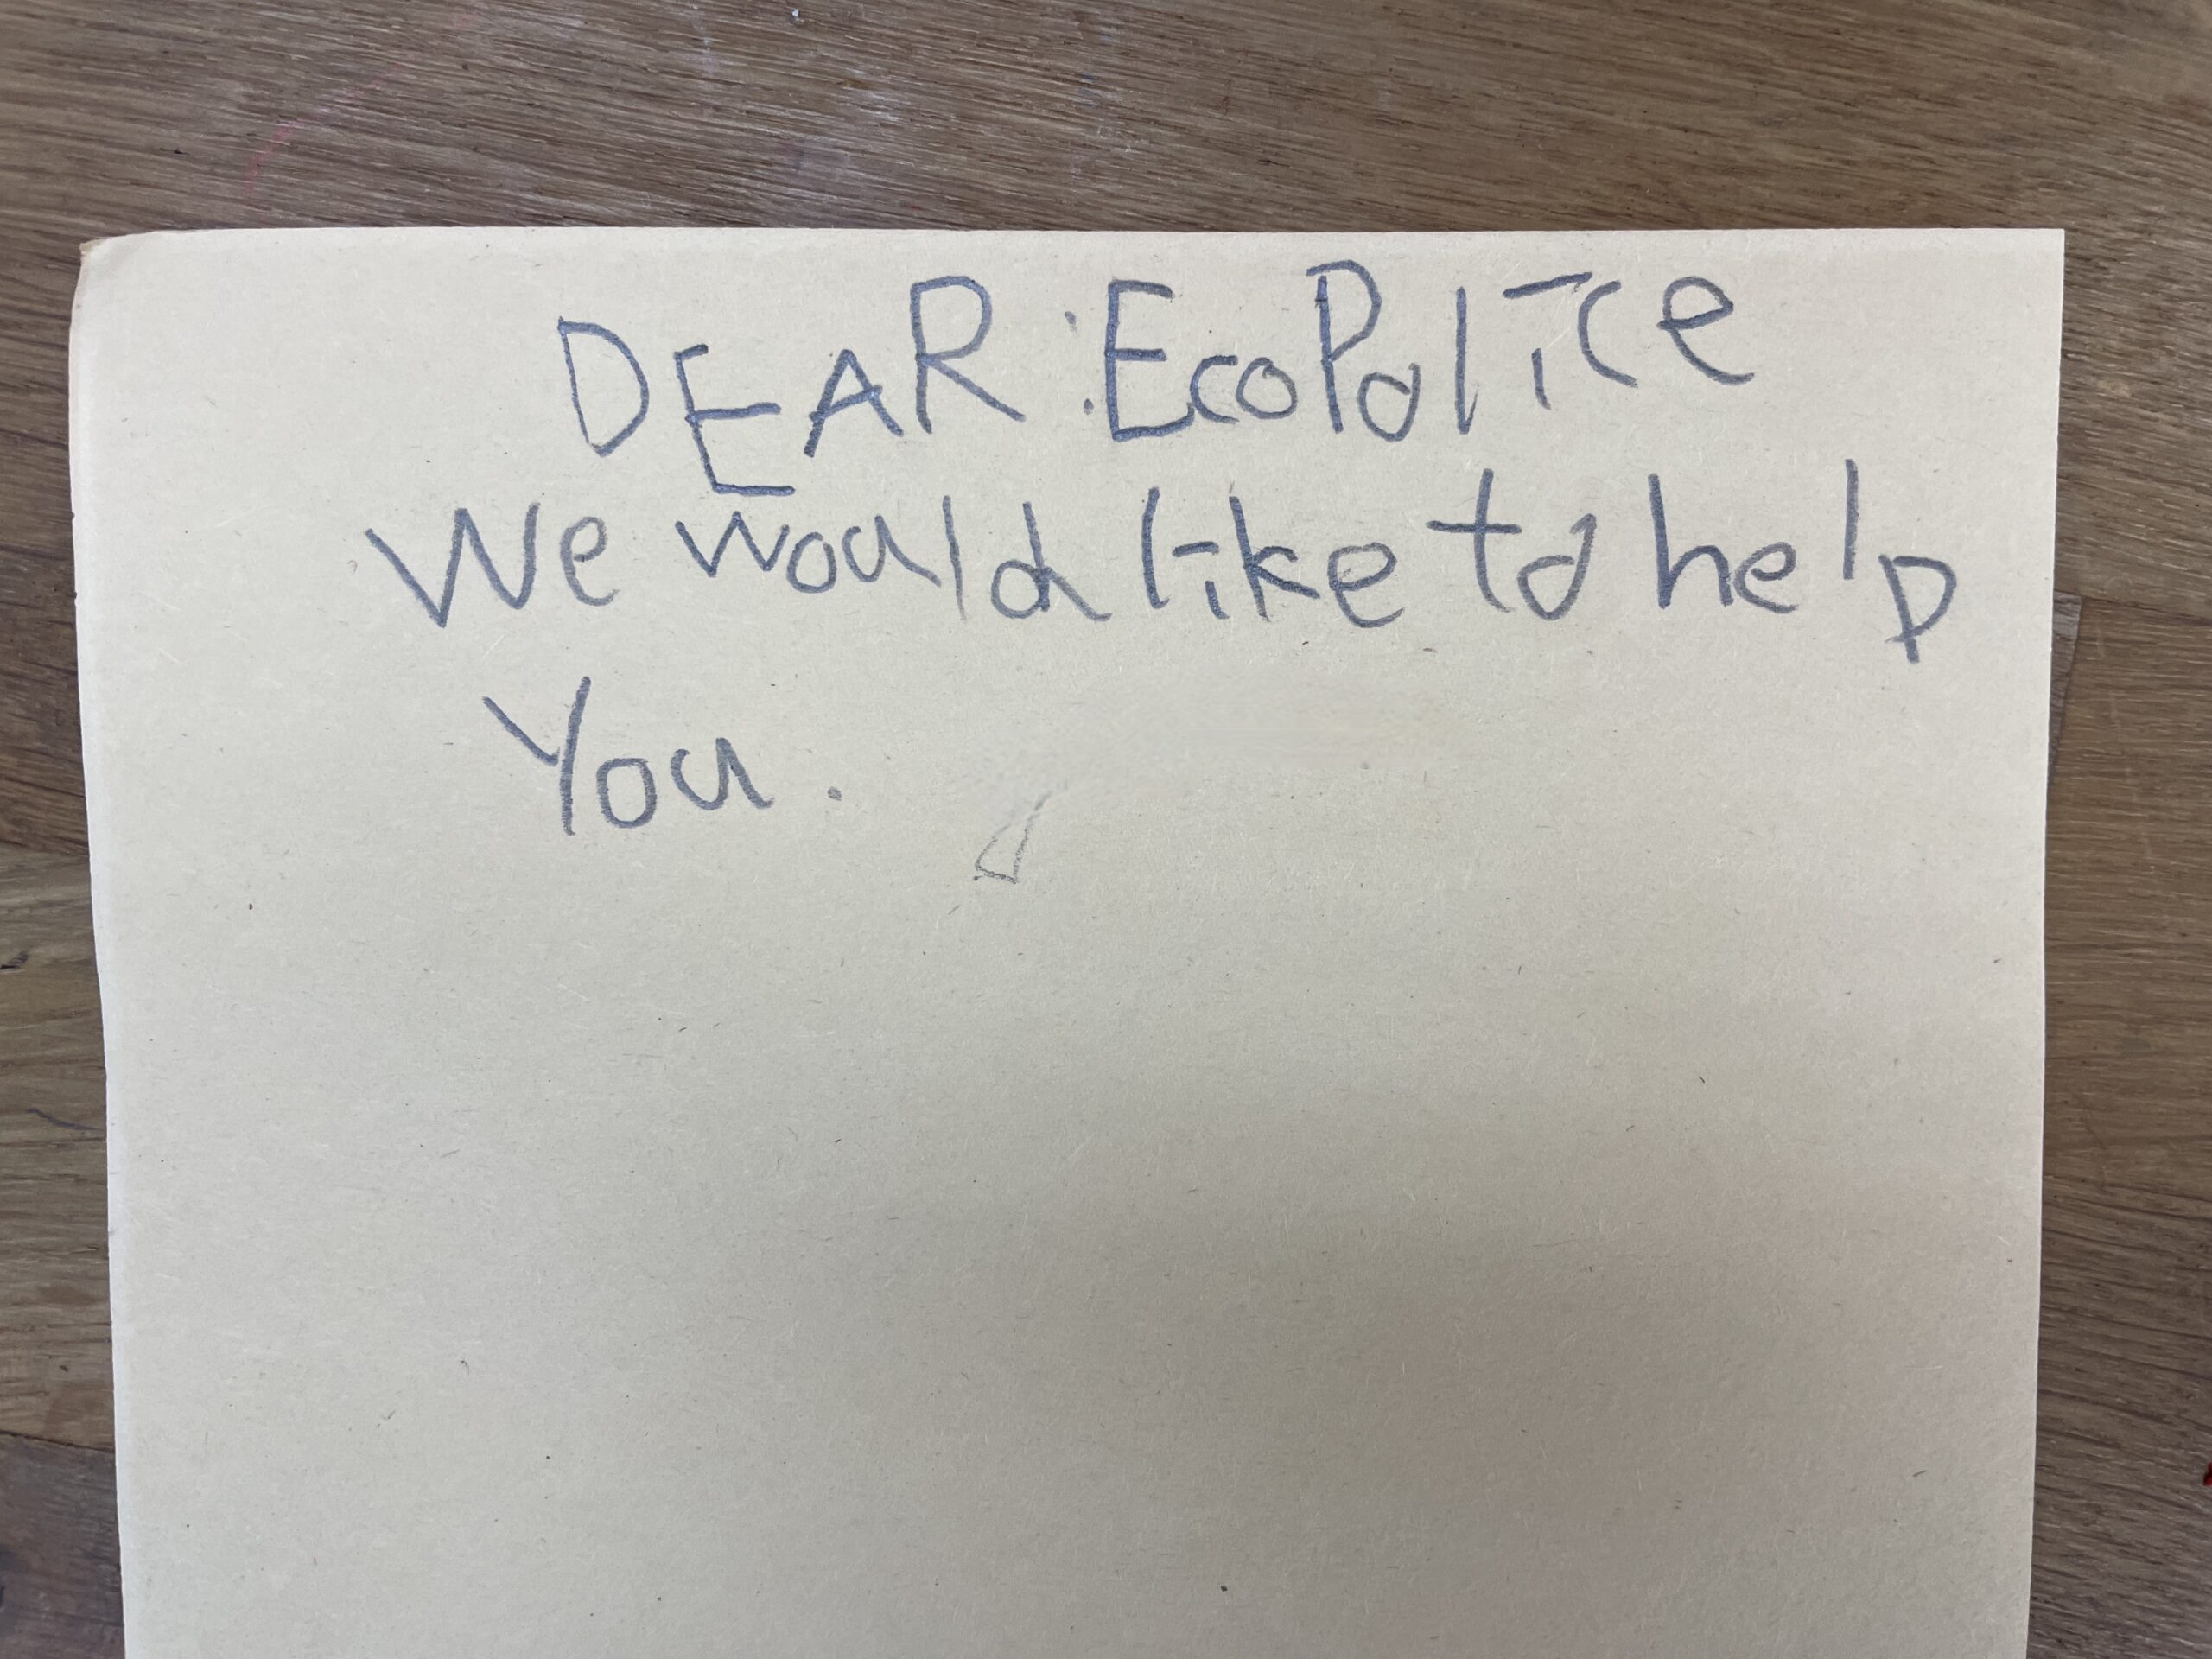 DEAR : EcoPolice
We would like to help
You.